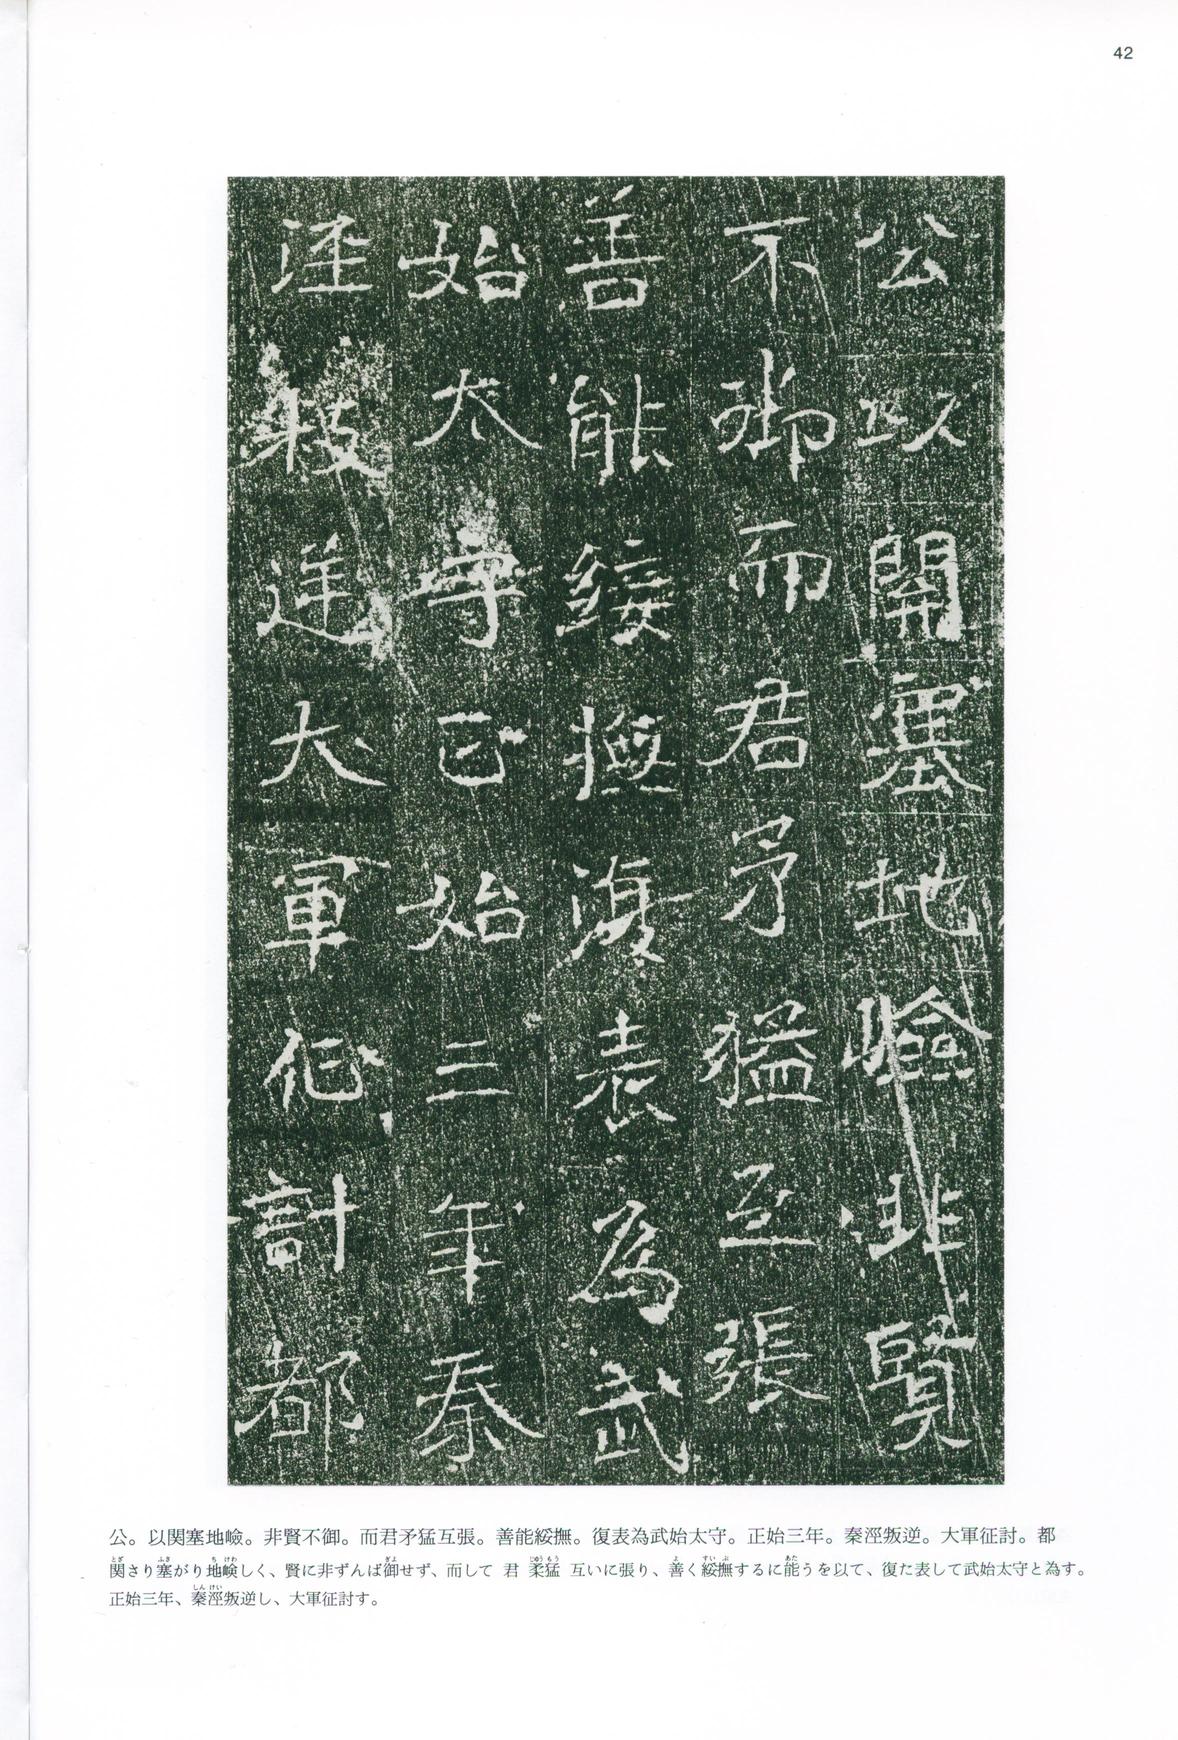 42
公以開塞地嶮非賢
不御而君矛猛互張
善能綏撫復表為武
始太守正始三年秦
涇叛逆大軍征討都
公。以関塞地嶮。非賢不御。而君矛猛互張。善能綏撫。復表為武始太守。正始三年。秦涇叛逆。大軍征討。都
関さり塞がり地嶮しく、賢に非ずんば御せず、而して 君 柔猛 互いに張り、善く綏撫するに能うを以て、復た表して武始太守と為す。
正始三年、秦涇叛逆し、大軍征討す。